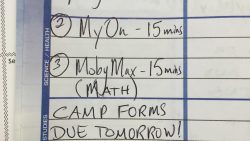 ② MyOn - 15 mins
③ MobyMax - 15 mins
(MATH)
CAMP FORMS
DUE TOMORROW!
SCIENCE / HEALTH
STUDIES